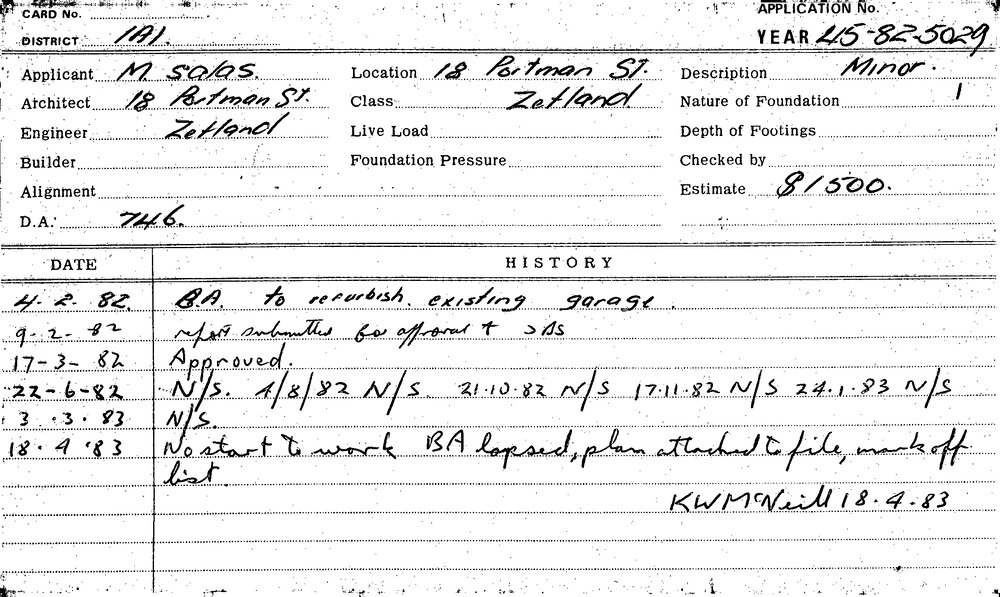 CARD No.
APPLICATION No.
DISTRICT 1A1.
YEAR 45-82-5029
Applicant M. Salas. Location 18 Portman St. Description Minor.
Architect 18 Portman St. Class Zetland Nature of Foundation 1
Engineer Zetland Live Load Depth of Footings
Builder Foundation Pressure Checked by
Alignment Estimate $1500.
D.A. 746.
DATE HISTORY
4-2-82. B.A. to refurbish existing garage.
9-2-82 report submitted for approval
17-3-82 Approved.
22-6-82 N/S. 4/8/82 N/S. 21.10.82 N/S 17.11.82 N/S 24.1.83 N/S
3.3.83 N/S.
18.4.83 No start to work BA lapsed, plan attached to file, mark off
list.
KWMcNeill 18.4.83